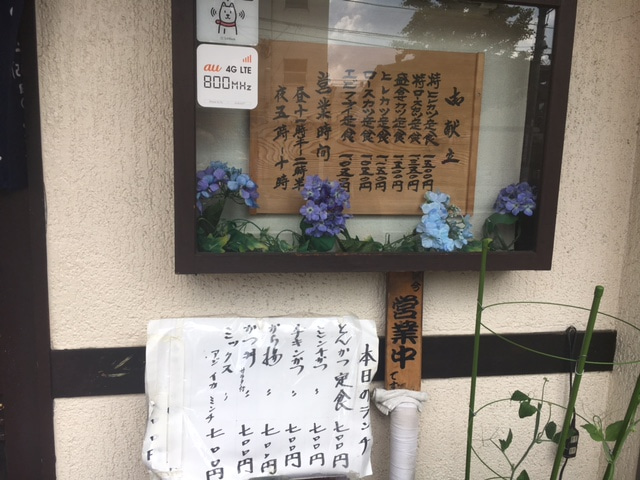 au 4G LTE
800MHz
お献立
特ヒレカツ定食 一五五〇円
特ロースカツ定食 一五五〇円
盛合せカツ定食
ヒレカツ定食
ロースカツ定食 一〇五〇円
エビフライ定食 一〇五〇円
営業時間
昼十一時半-二時半
夜五時-十時
営業中
本日のランチ
とんかつ定食 七〇〇円
ミンチかつ 〃 七〇〇円
チキンかつ 〃 七〇〇円
から揚 〃 七〇〇円
かつ丼 〃 七〇〇円
ミックス 〃
アジ イカ ミンチ 七〇〇円